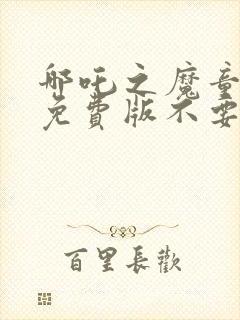 哪吒之魔童
免費版不要
百里長歡